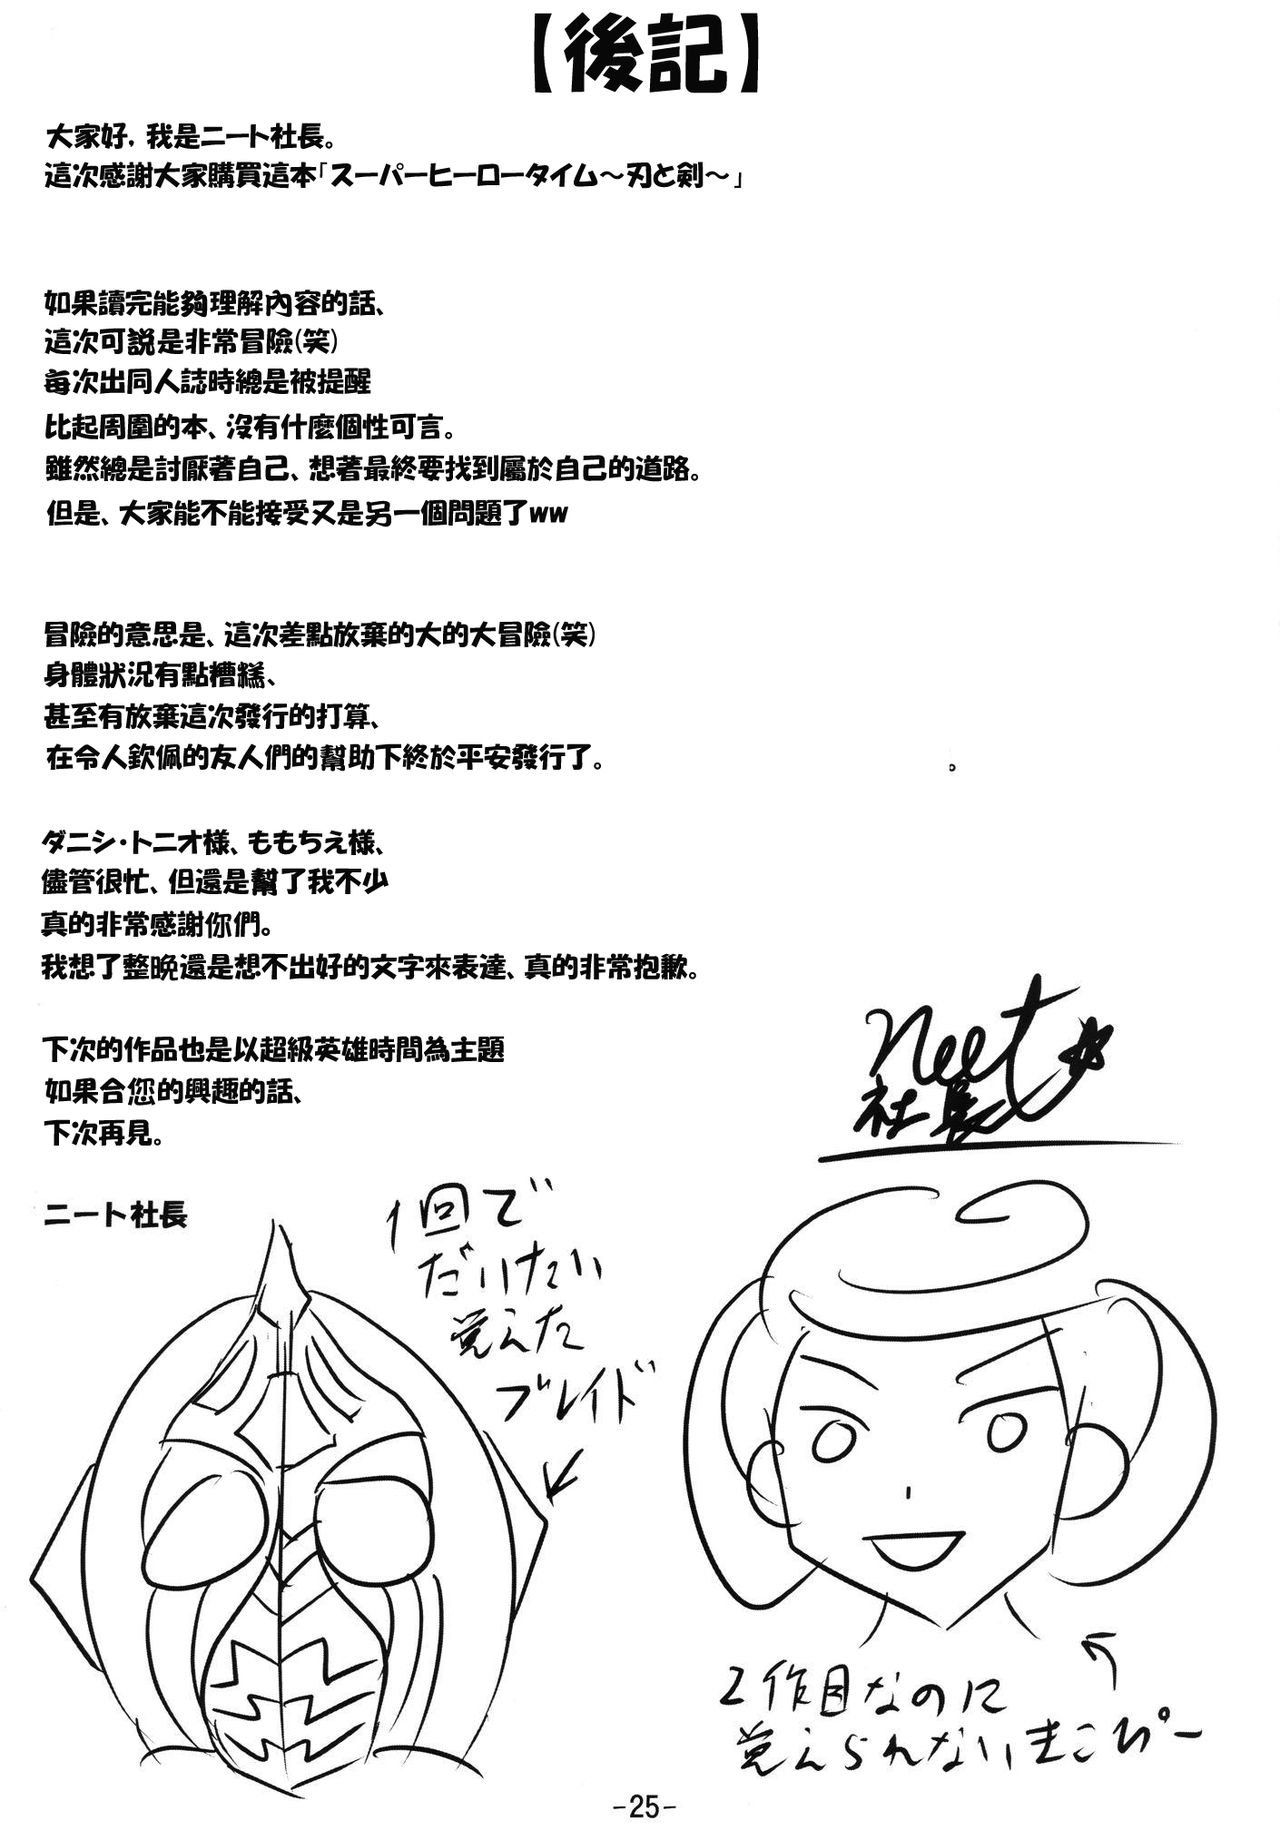 【後記】
大家好，我是ニート社長。
這次感謝大家購買這本「スーパーヒーロータイム～刃と剣～」
如果讀完能夠理解內容的話、
這次可説是非常冒險(笑)
每次出同人誌時總是被提醒
比起周圍的本、沒有什麼個性可言。
雖然總是討厭著自己、想著最終要找到屬於自己的道路。
但是、大家能不能接受又是另一個問題了ww
冒險的意思是、這次差點放棄的大的大冒險(笑)
身體狀況有點糟糕、
甚至有放棄這次發行的打算、
在令人欽佩的友人們的幫助下終於平安發行了。
。
ダニシ・トニオ様、ももちえ様、
儘管很忙、但還是幫了我不少
真的非常感謝你們。
我想了整晩還是想不出好的文字來表達、真的非常抱歉。
下次的作品也是以超級英雄時間為主題
如果合您的興趣的話、
下次再見。
ニート社長
neet
社長
1回で
だいたい
覚えた
ブレイド
2作目なのに
覚えられないまこぴー
-25-